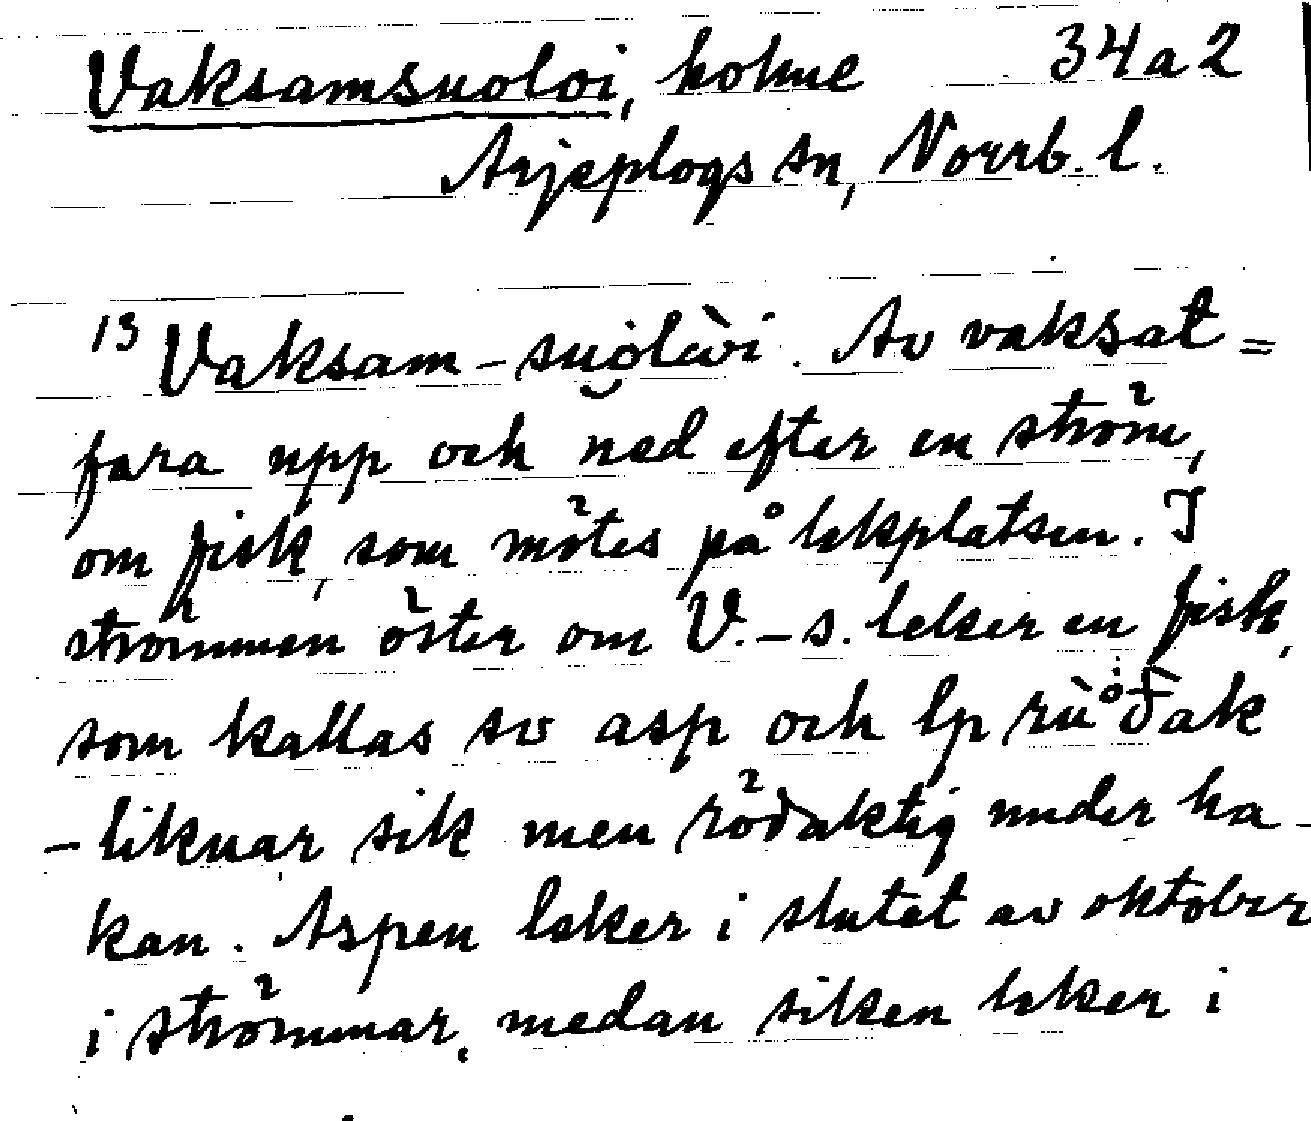 Vaksamsuoloi, holme 34a2
Arjeplogs sn, Norrb. l.
13 Vaksam-suo̯lòi. Av vaksat =
fara upp och ned efter en ström,
om fisk, som mötes på lekplatsen. I
strömmen öster om V.-s. leker en fisk,
som kallas sv asp och lp
- liknar sik men rödaktig under ha-
kan. Aspen leker i slutet av oktober
i strömmar, medan siken leker i